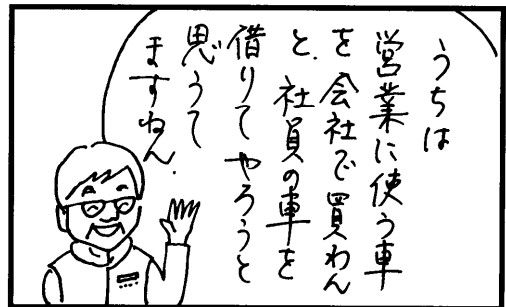 うちは
営業に使う車
を会社で買わん
と、社員の車を
借りてやろうと
思うて
ますねん.